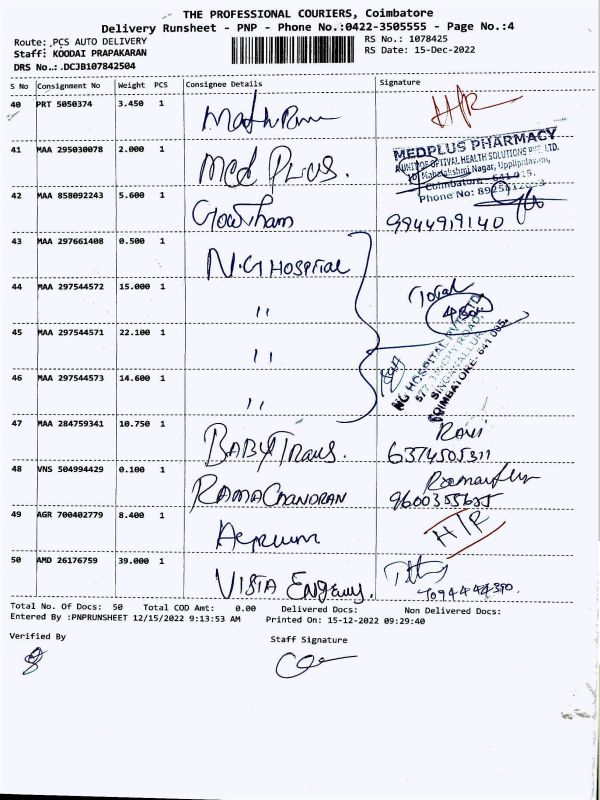 THE PROFESSIONAL COURIERS, Coimbatore
Delivery Runsheet - PNP - Phone No.:0422-3505555 - Page No.:4
Route: PCS AUTO DELIVERY
RS No.: 1078425
Staff: KOODAI PRAPAKARAN
RS Date: 15-Dec-2022
DRS No.:.DCJB107842504
S No Consignment No Weight PCS Consignee Details Signature
40 PRT 5050374 3.450 1
41 MAA 295030078 2.000 1 Med Plus.
MEDPLUS PHARMACY
(A UNIT OF OPTIVAL HEALTH SOLUTIONS PVT. LTD.
Mahalakshmi Nagar, Uppilipalayam,
Coimbatore - 641 015.
Phone No:
42 MAA 858092243 5.600 1 Gowtham 9944919140
43 MAA 297661408 0.500 1 N.G HOSPITAL
44 MAA 297544572 15.000 1 " Total
45 MAA 297544571 22.100 1 "
NG HOSPITAL PVT LTD
577, TRICHY ROAD,
SINGANALLUR,
COIMBATORE-641 005.
46 MAA 297544573 14.600 1 "
47 MAA 284759341 10.750 1 BABY Trans. Ravi
6374505311
48 VNS 504994429 0.100 1 RAMACHANDRAN
9600355685
49 AGR 700402779 8.400 1
50 AMD 26176759 39.000 1 VISTA
Total No. Of Docs: 50 Total COD Amt: 0.00 Delivered Docs: Non Delivered Docs:
Entered By :PNPRUNSHEET 12/15/2022 9:13:53 AM Printed On: 15-12-2022 09:29:40
Verified By Staff Signature